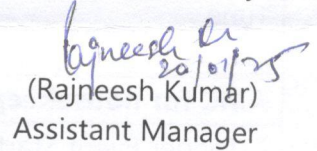 Rajneesh Kr
20/01/25
(Rajneesh Kumar)
Assistant Manager